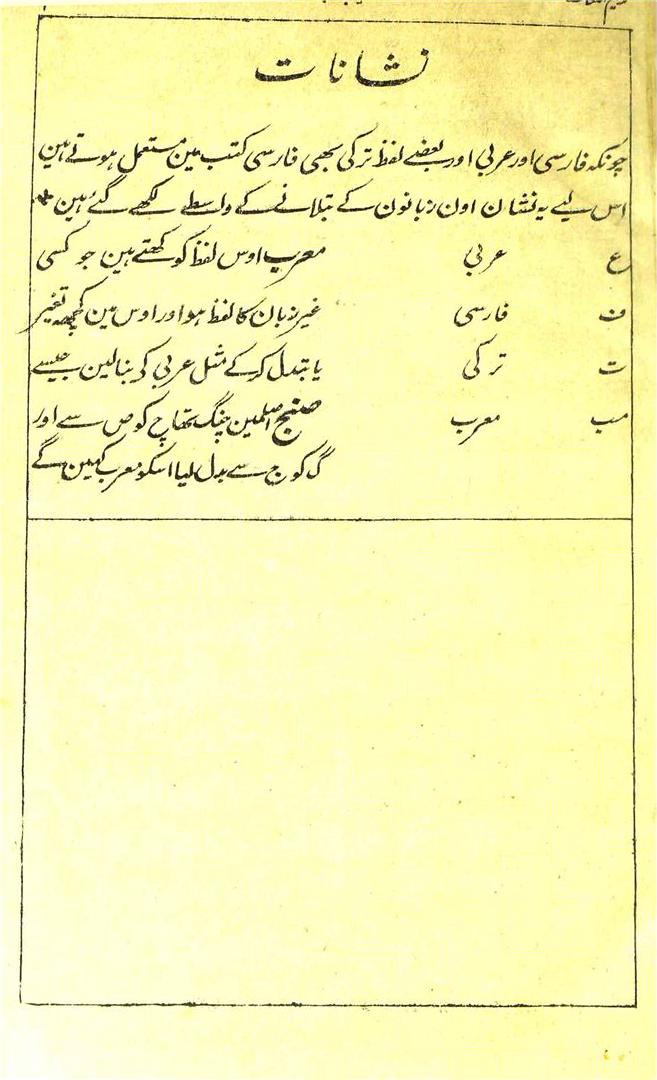 نشانات
چونکہ فارسی اور عربی اور بعضے لفظ ترکی بھی فارسی کتب مین مستعمل ہوتے ہین
اس لیے یہ نشان اون زبانون کے بتلانے کے واسطے لکھے گئے ہین
ع عربی معرب اوس لفظ کو کہتے ہین جو کسی
ف فارسی غیر زبان کا لفظ ہو اور اوس مین کچھ تغیر
ت ترکی یا تبدل کر کے مثل عربی کی بنا لین جیسے
مب معرب صنج اصلمین چنگ تھا چ کو ص سے اور
گ کو ج سے بدل لیا اسکو معرب کہین گے